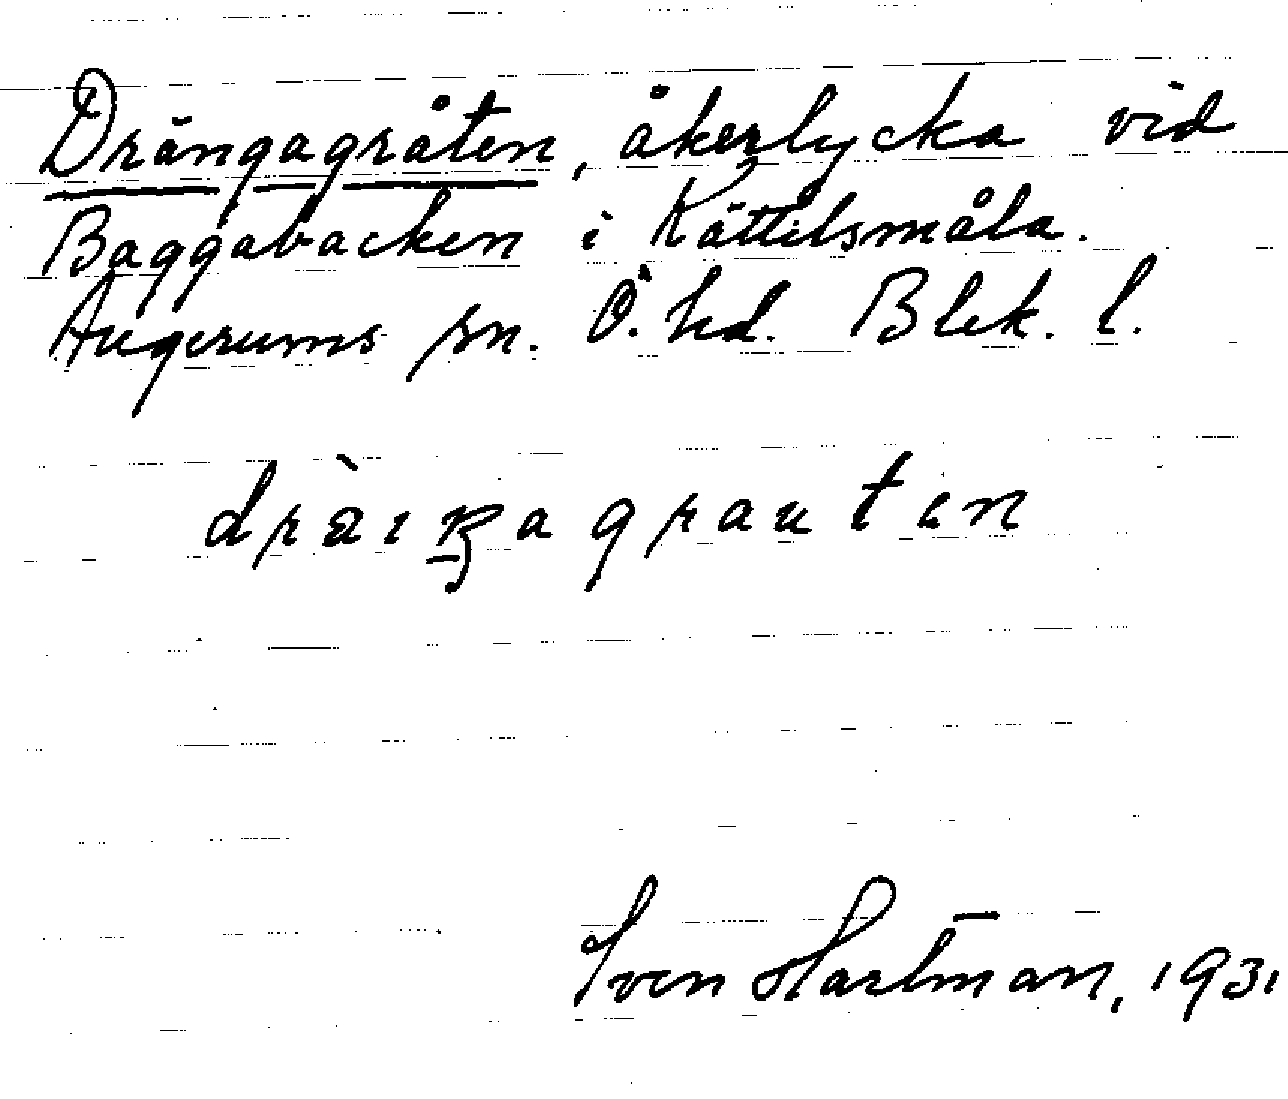 Drängagråten, åkerlycka vid
Baggabacken i Kättilsmåla.
Augerums sn. Ö. hd. Blek. l.
Sven Hartman, 1931